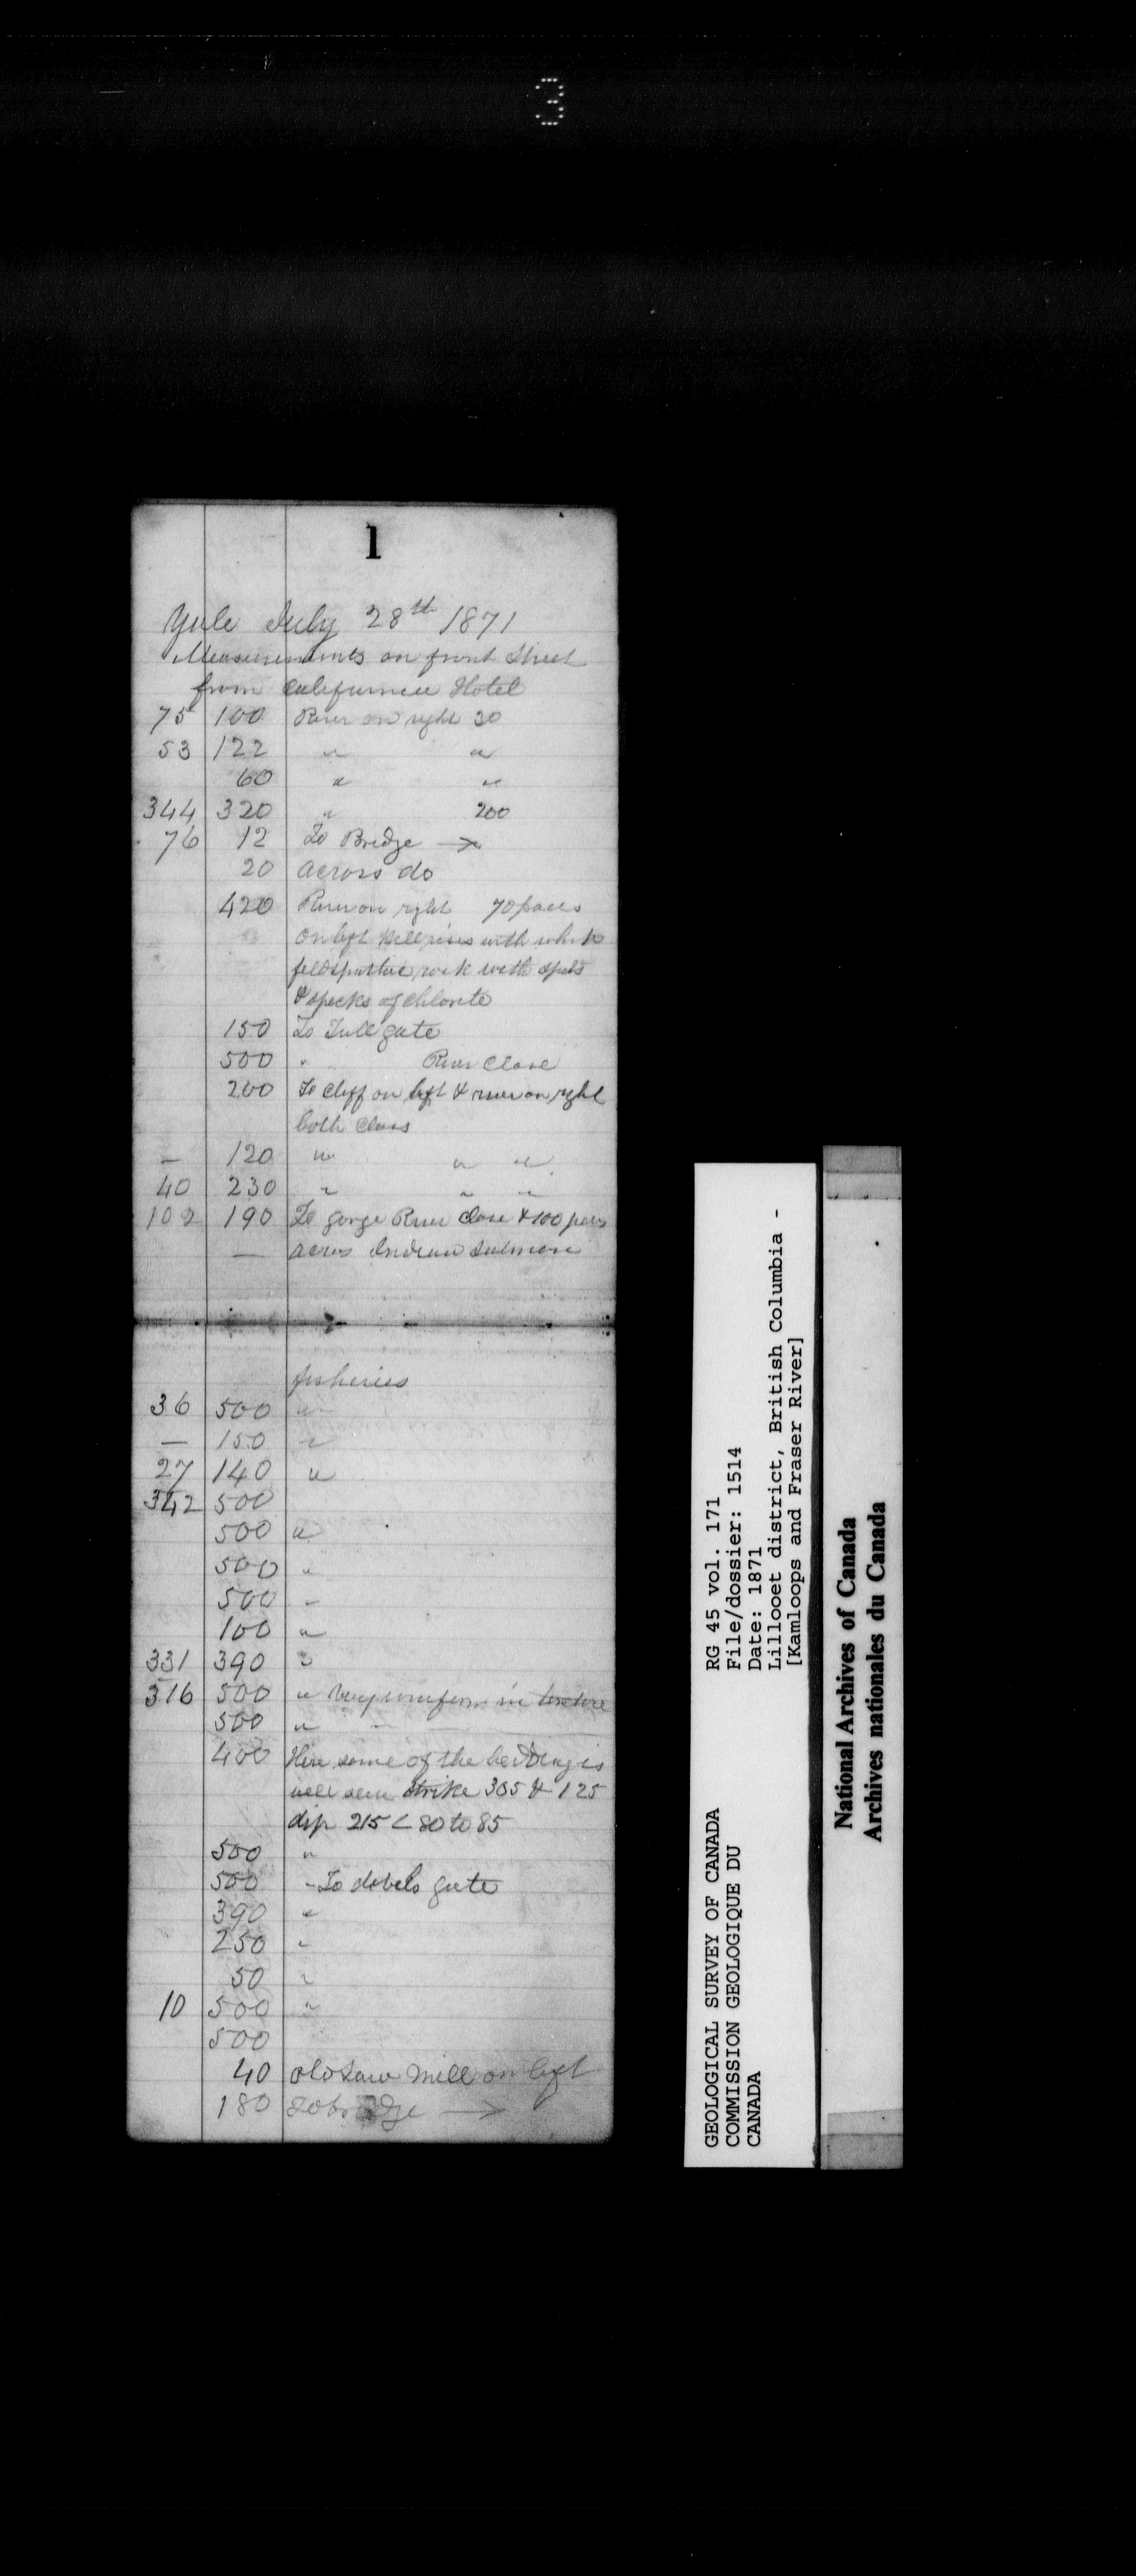 3
1
Yale July 28th 1871
Measurements on front Street
from California Hotel
75 100 River on right 30
53 122 " "
60 " "
344 320 " 200
76 12 To Bridge →
20 across do
420 River on right 70 paces
On left hill rises with white
feldspathic rock with spots
& specks of chlorite
150 To Tollgate
500 " River Close
200 To cliff on left & river on right
both close
— 120 " " "
40 230 " " "
102 190 To gorge River Close & 100 paces
— across Indian Salmon
fisheries
36 500 "
— 150 "
27 140 "
342 500
500 "
500 "
500 "
100 "
331 390 "
316 500 " very uniform in texture
500 " "
400 Here some of the bedding is
well seen strike 305 & 125
dip 215 < 80 to 85
500 "
500 " To gate
390 "
250 "
50 "
10 500 "
500
40 old Saw Mill on left
180 To bridge →
GEOLOGICAL SURVEY OF CANADA
COMMISSION GEOLOGIQUE DU
CANADA
RG 45 vol. 171
File/dossier: 1514
Date: 1871
Lillooet district, British Columbia -
[Kamloops and Fraser River]
National Archives of Canada
Archives nationales du Canada